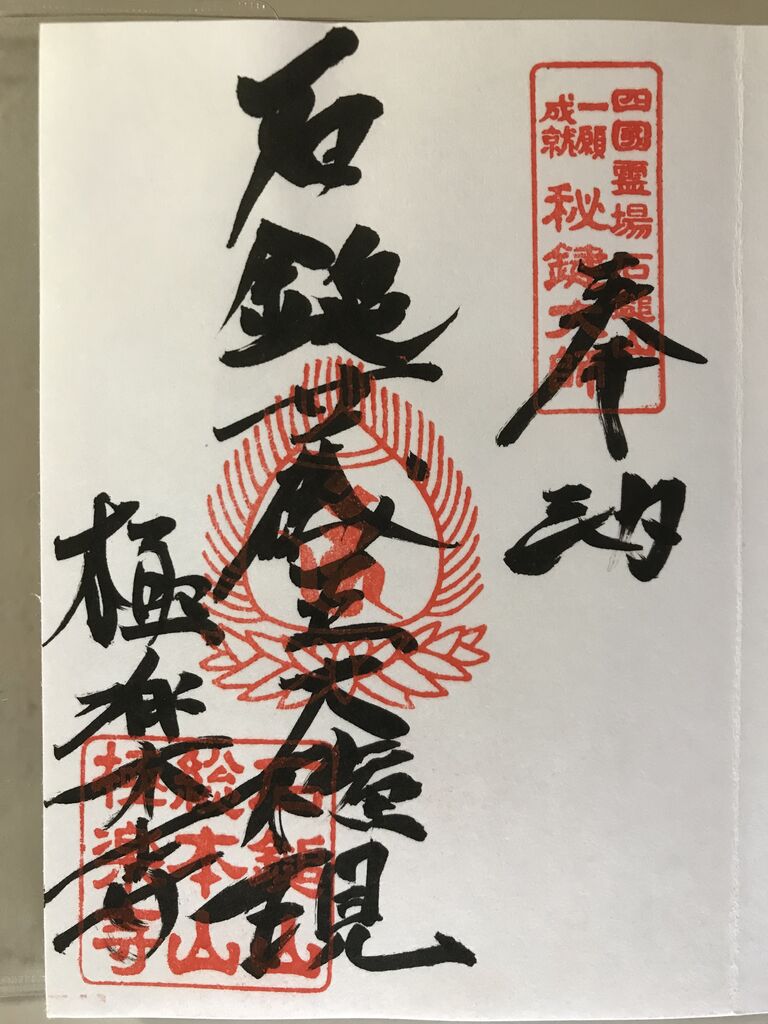 四國霊場 石鎚山
一願成就 秘鍵大師
奉納
石鎚蔵王大権現
極楽寺
石鎚山
総本山
極楽寺